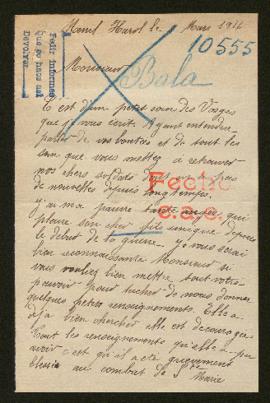 Menil Hurol le Mars 1916
10555
Pedir informes
Devolver
Monsieur
Bala
C'est d'un petit coin des Vosges
que je vous écrit. Ayant entendu
parler de vos bontées et de tout les
soin que vous mettez a retrouver
nos chers soldats dont on a pas
de nouvelles depuis longtemps.
Fecho
y'ai ma pauvre tante qui
pleure son cher fils unique depuis
le debut de la guerre. je vous serai
bien reconnaissante Monsieur si
vous vouliez bien mettre tout votre
pouvoir pour tacher de nous donner
quelques petits renseignements. Elle a
déja bien chercher elle est découragée
tout les renseignements qu'elle a pu
avoir c'est qu'il a été grievement
blessé au combat de Ste Marie